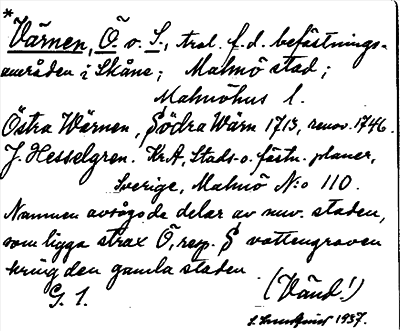 *
Värnen, Ö. o. S., tral. f.d. befästnings-
områden i Skåne; Malmö stad;
Malmöhus l.
Östra Wärnen, Södra Wärn 1713, renov. 1746.
J. Hesselgren. Kr.A, Stads- o. fästn. planer,
Sverige, Malmö N:o 110.
Namnen avsågo de delar av nuv. staden,
som ligga strax Ö, resp. S vattengraven
kring den gamla staden.
G. 1. (Vänd!)
1937.